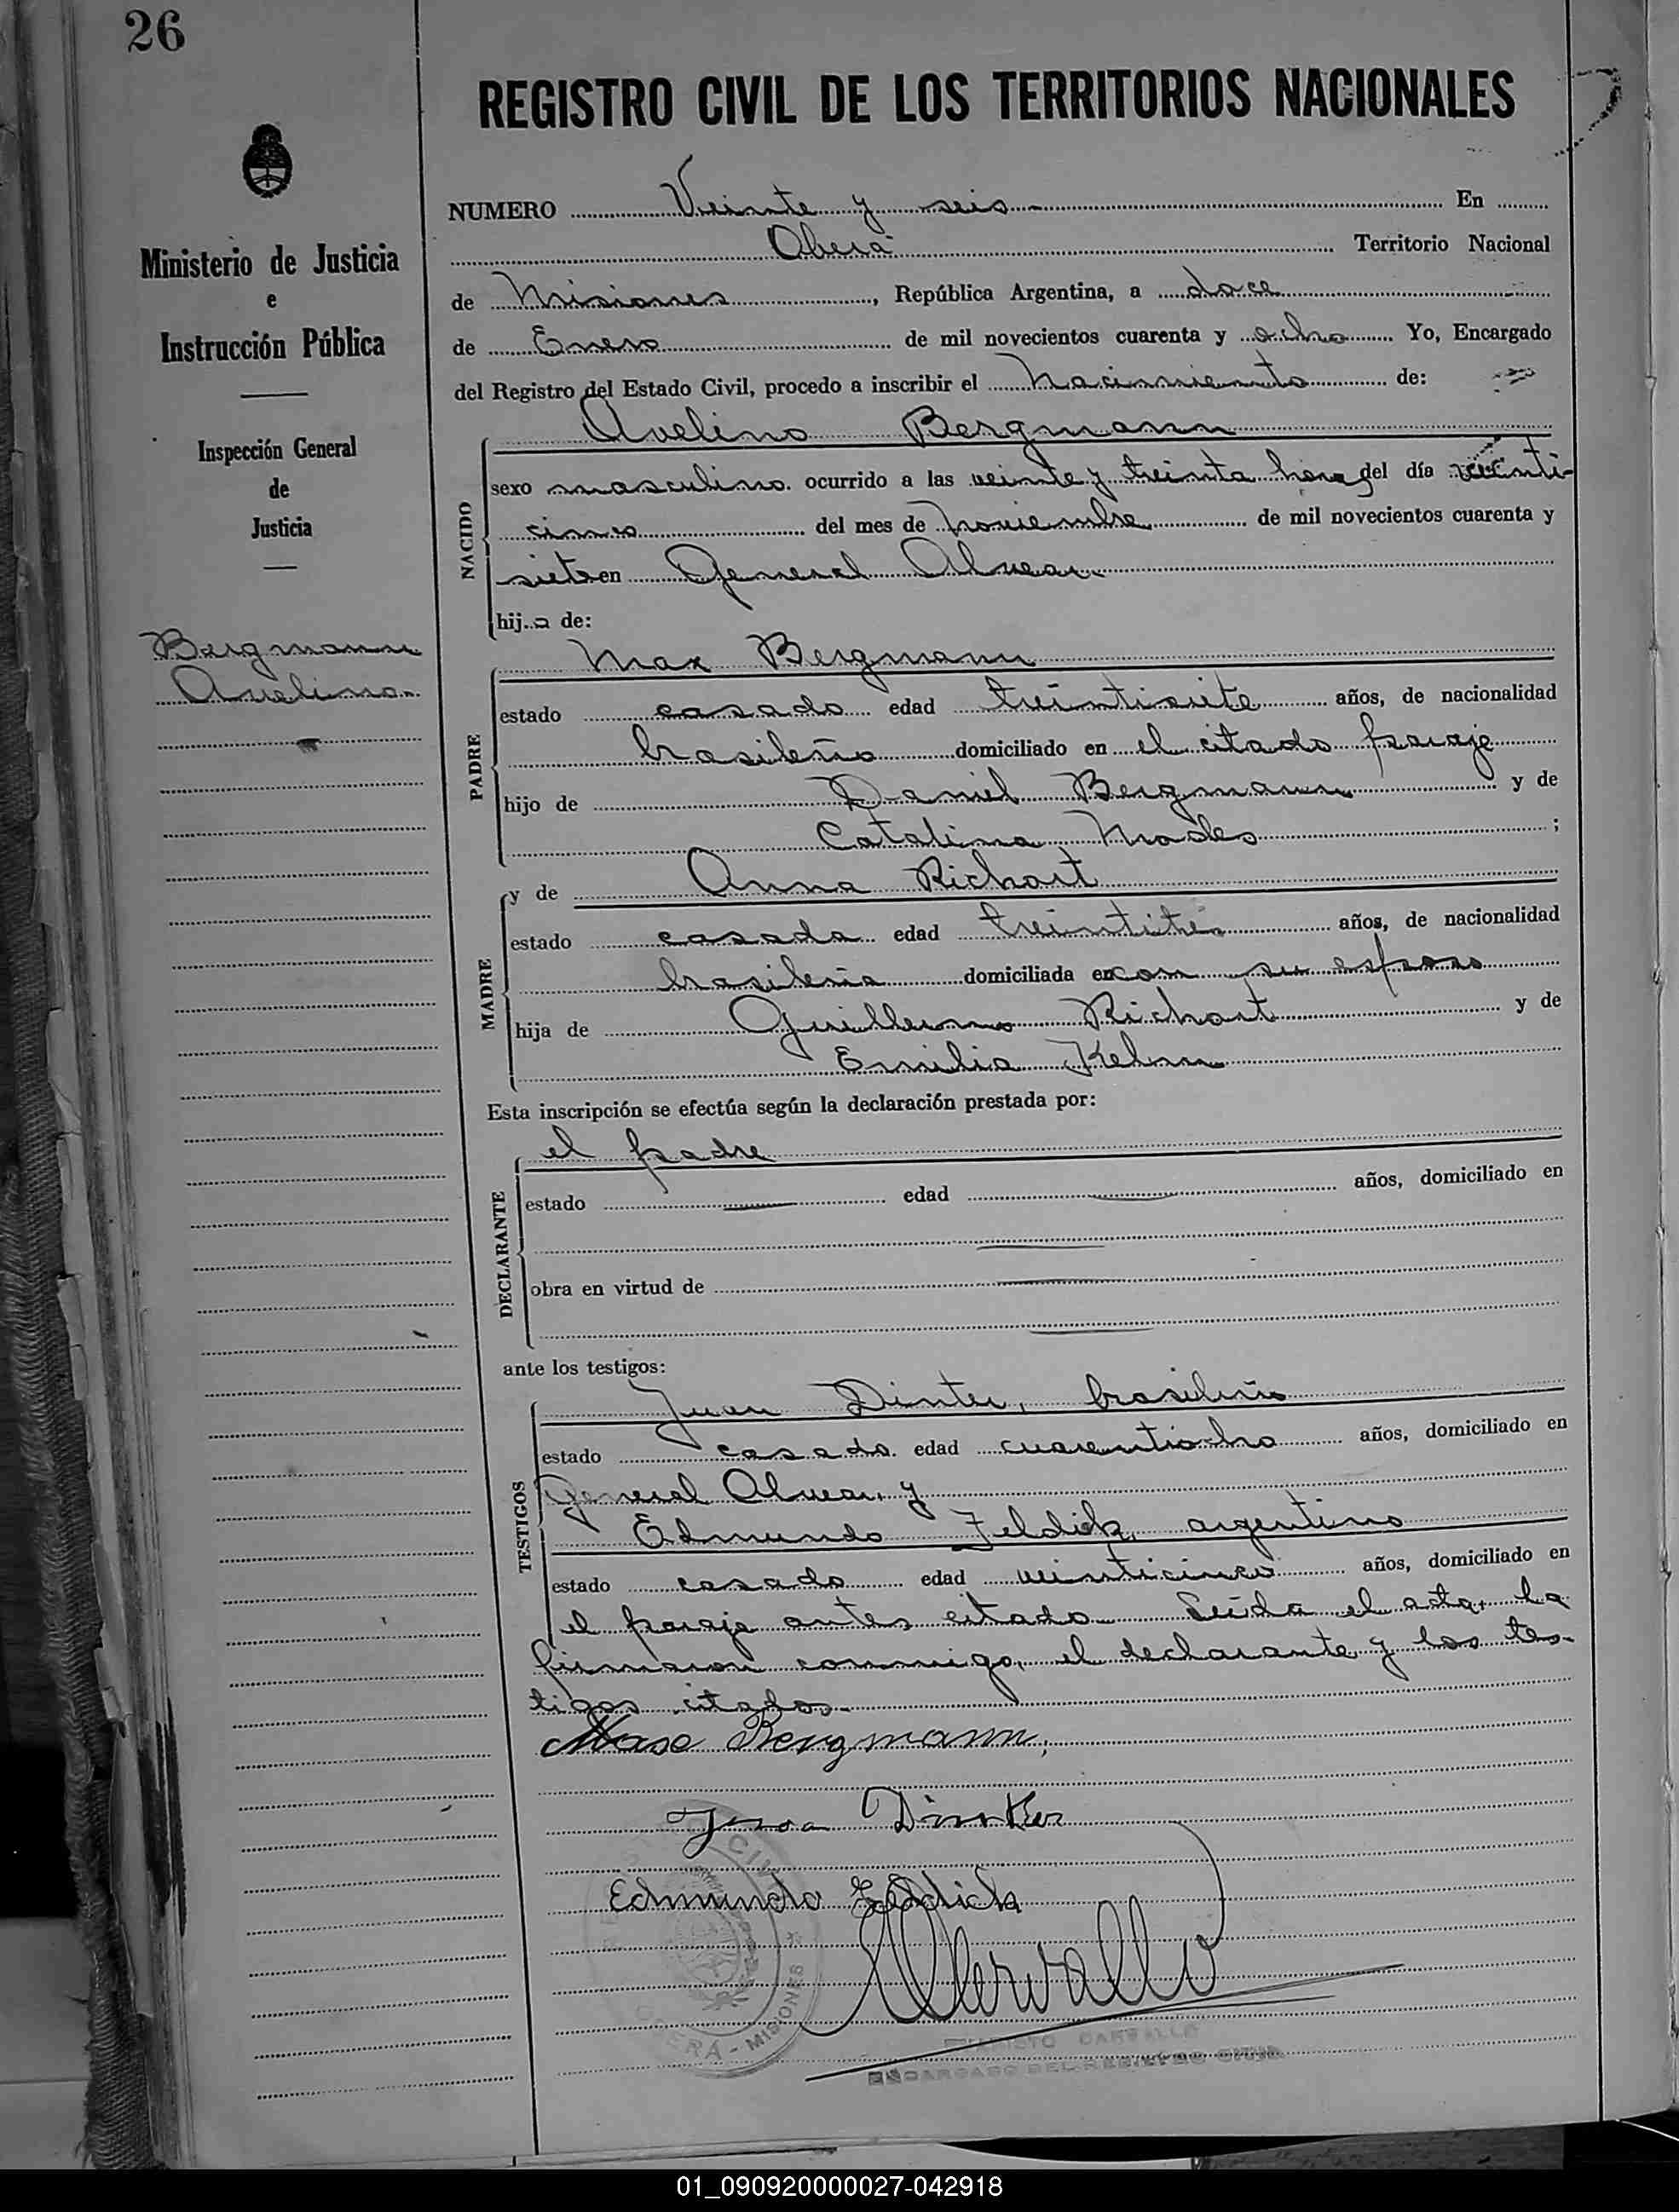 26
REGISTRO CIVIL DE LOS TERRITORIOS NACIONALES
Ministerio de Justicia
e
Instrucción Pública
Inspección General
de
Justicia
Bergmann
Avelino
NUMERO Veinte y seis En
Oberá Territorio Nacional
de Misiones, República Argentina, a doce
de Enero de mil novecientos cuarenta y ocho Yo, Encargado
del Registro del Estado Civil, procedo a inscribir el Nacimiento de:
NACIDO
Avelino Bergmann
sexo masculino. ocurrido a las veinte y treinta horas del día veinti-
cinco del mes de Noviembre de mil novecientos cuarenta y
siete en General Alvear
hij o de:
PADRE
Max Bergmann
estado casado edad treintisiete años, de nacionalidad
brasileño domiciliado en el citado paraje
hijo de Daniel Bergmann y de
Catalina ;
MADRE
y de Anna Richart
estado casada edad treintitrés años, de nacionalidad
brasileña domiciliada en con su esposo
hija de Guillermo Richart y de
Emilia Kelm
Esta inscripción se efectúa según la declaración prestada por:
DECLARANTE
el padre
estado edad años, domiciliado en
obra en virtud de
ante los testigos:
TESTIGOS
Juan Dinter, brasileño
estado casado. edad cuarentiocho años, domiciliado en
General Alvear, y
Edmundo Feldick, argentino
estado casado edad veinticinco años, domiciliado en
el paraje antes citado. Leída el acta, la
firmaron conmigo, el declarante y los tes-
tigos citados.-
Max Bergmann
Dinter
Edmundo Feldick
CIVIL
OBERA - MISIONES
CARVALLO
ENCARGADO DEL REGISTRO CIVIL
01_090920000027-042918